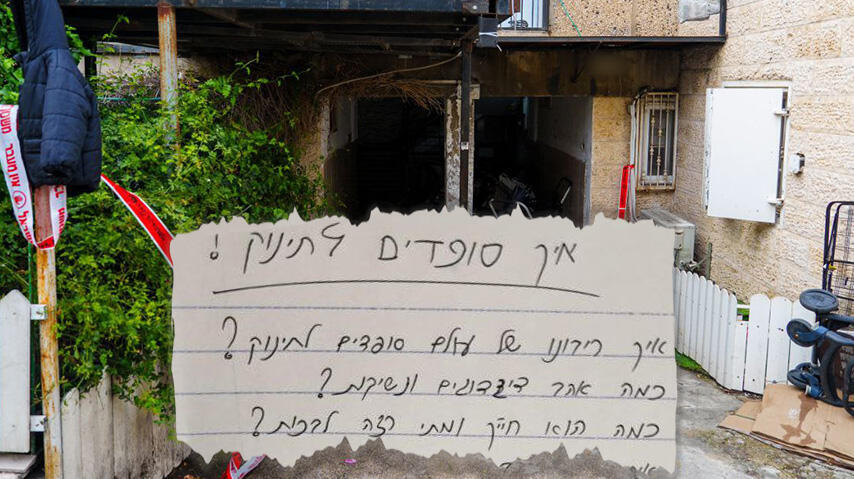 איך סופדים לתינוק!
איך ריבונו של עולם סופדים לתינוק?
כמה אהב דיגדוגים ונשיקות?
כמה הוא חייך ומתי רצה לבכות?